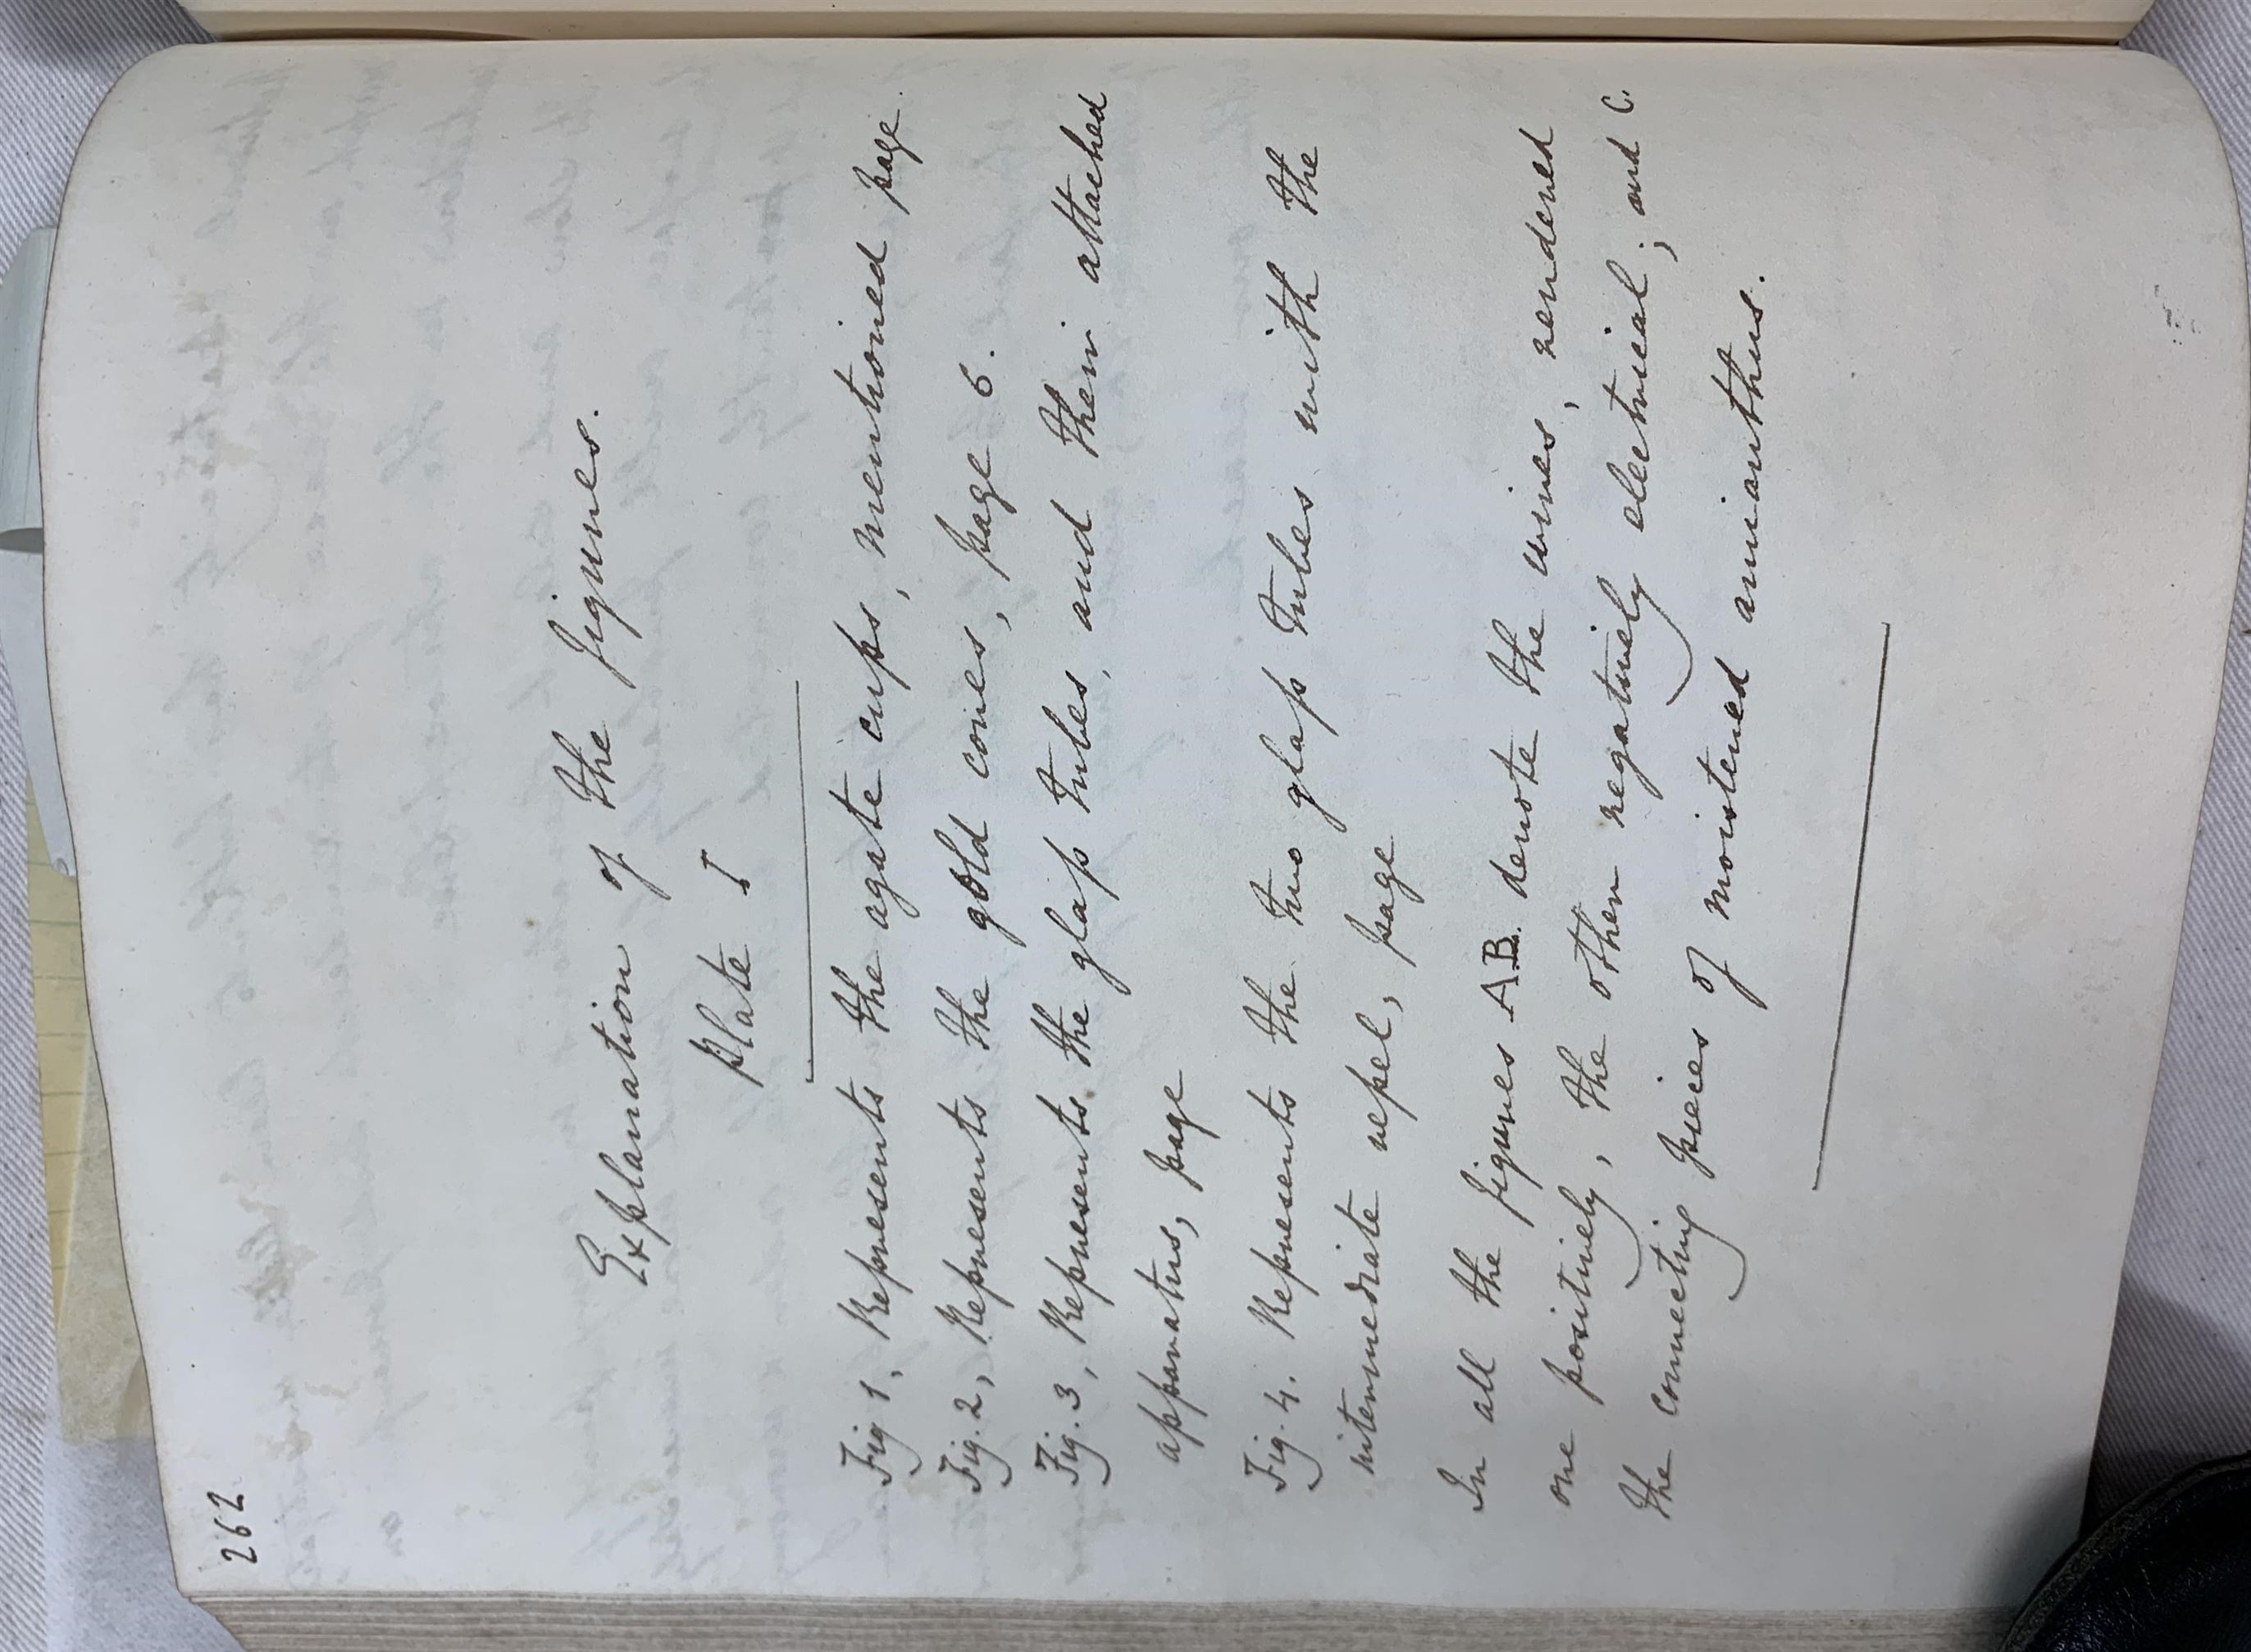 262
Explanation of the figures.
Plate I
Fig 1, Represents the agate cups, mentioned page.
Fig. 2, Represents the gold cones, page 6.
Fig. 3, Represents the glass tubes, and their attached
apparatus, page
Fig. 4. Represents the two glass tubes with the
intermediate vessel, page
In all the figures AB. denote the wires, rendered
one positively, the other negatively electrical; and C.
the connecting pieces of moistened amianthus.